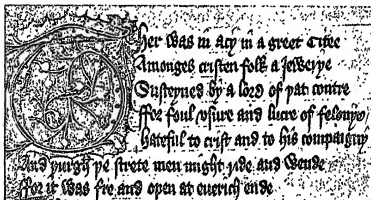 Ther was in acy in a greet Citee
Amonges cristen folk a Jewerye
Susteyned by a lord of þat contre
ffor foul vsure and lucre of felonye
hateful to crist and to his compaignye
And þurgh þe strete men might ride and wende
ffor it was fre and open at euerich ende